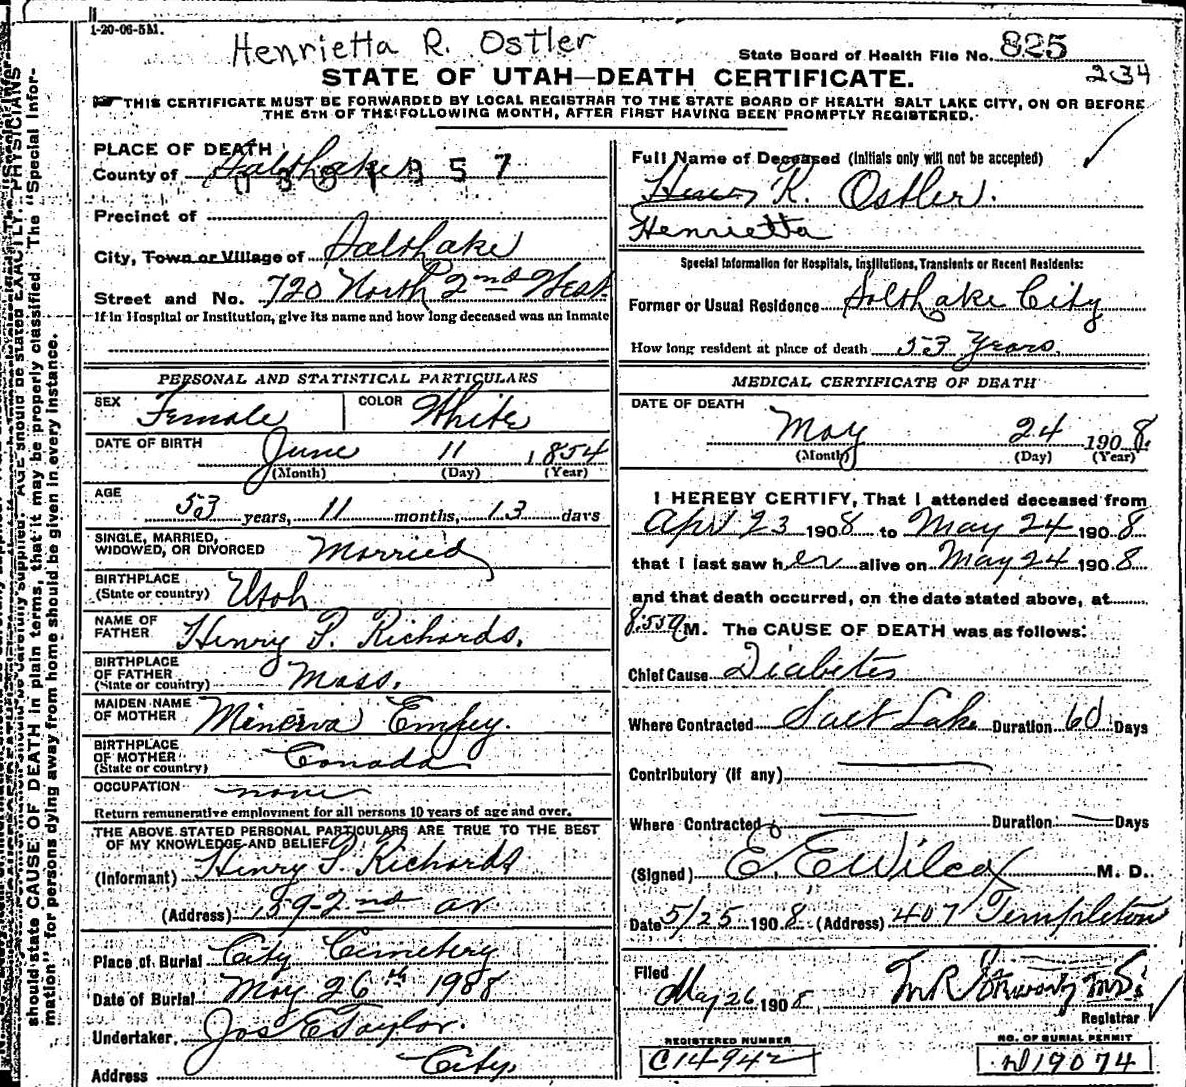 1-20-06-5M.
Henrietta R. Ostler
State Board of Health File No. 825
234
STATE OF UTAH—DEATH CERTIFICATE.
THIS CERTIFICATE MUST BE FORWARDED BY LOCAL REGISTRAR TO THE STATE BOARD OF HEALTH SALT LAKE CITY, ON OR BEFORE
THE 5TH OF THE FOLLOWING MONTH, AFTER FIRST HAVING BEEN PROMPTLY REGISTERED.
PLACE OF DEATH
County of Salt Lake
Precinct of
City, Town or Village of Salt Lake
Street and No. 720 North 2nd West
If in Hospital or Institution, give its name and how long deceased was an inmate
PERSONAL AND STATISTICAL PARTICULARS
SEX Female COLOR White
DATE OF BIRTH June 11 1854
(Month) (Day) (Year)
AGE 53 years, 11 months, 13 days
SINGLE, MARRIED,
WIDOWED, OR DIVORCED Married
BIRTHPLACE
(State or country) Utah
NAME OF
FATHER Henry P. Richards.
BIRTHPLACE
OF FATHER
(State or country) Mass.
MAIDEN NAME
OF MOTHER Minerva Empey.
BIRTHPLACE
OF MOTHER
(State or country) Canada
OCCUPATION none
Return remunerative employment for all persons 10 years of age and over.
THE ABOVE STATED PERSONAL PARTICULARS ARE TRUE TO THE BEST
OF MY KNOWLEDGE AND BELIEF
(Informant) Henry P. Richards
(Address) 159-2nd av
Place of Burial City Cemetery
Date of Burial May 26th 1908
Undertaker, Jos E Taylor.
Address City.
Full Name of Deceased (Initials only will not be accepted)
Henry R. Ostler.
Henrietta
Special Information for Hospitals, Institutions, Transients or Recent Residents:
Former or Usual Residence Salt Lake City
How long resident at place of death 53 Years.
MEDICAL CERTIFICATE OF DEATH
DATE OF DEATH
May 24 1908.
(Month) (Day) (Year)
I HEREBY CERTIFY, That I attended deceased from
April 23 1908 to May 24 1908
that I last saw her alive on May 24 1908
and that death occurred, on the date stated above, at
8:55 A M. The CAUSE OF DEATH was as follows:
Chief Cause Diabetes
Where Contracted Salt Lake Duration 60 Days
Contributory (if any)
Where Contracted Duration Days
(Signed) E. E Wilcox M. D.
Date 5/25 1908 (Address) 407 Templeton
Filed
May 26 1908
Registrar
REGISTERED NUMBER
C14942
NO. OF BURIAL PERMIT
19074
should state CAUSE OF DEATH in plain terms, that it may be properly classified. The "Special Infor-
mation" for persons dying away from home should be given in every instance.